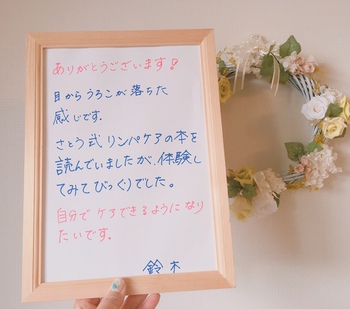 ありがとうございます!
目からうろこが落ちた
感じです。
さとう式 リンパケアの本を
読んでいましたが、体験し
てみてびっくりでした。
自分で ケアできるようになり
たいです。
鈴木